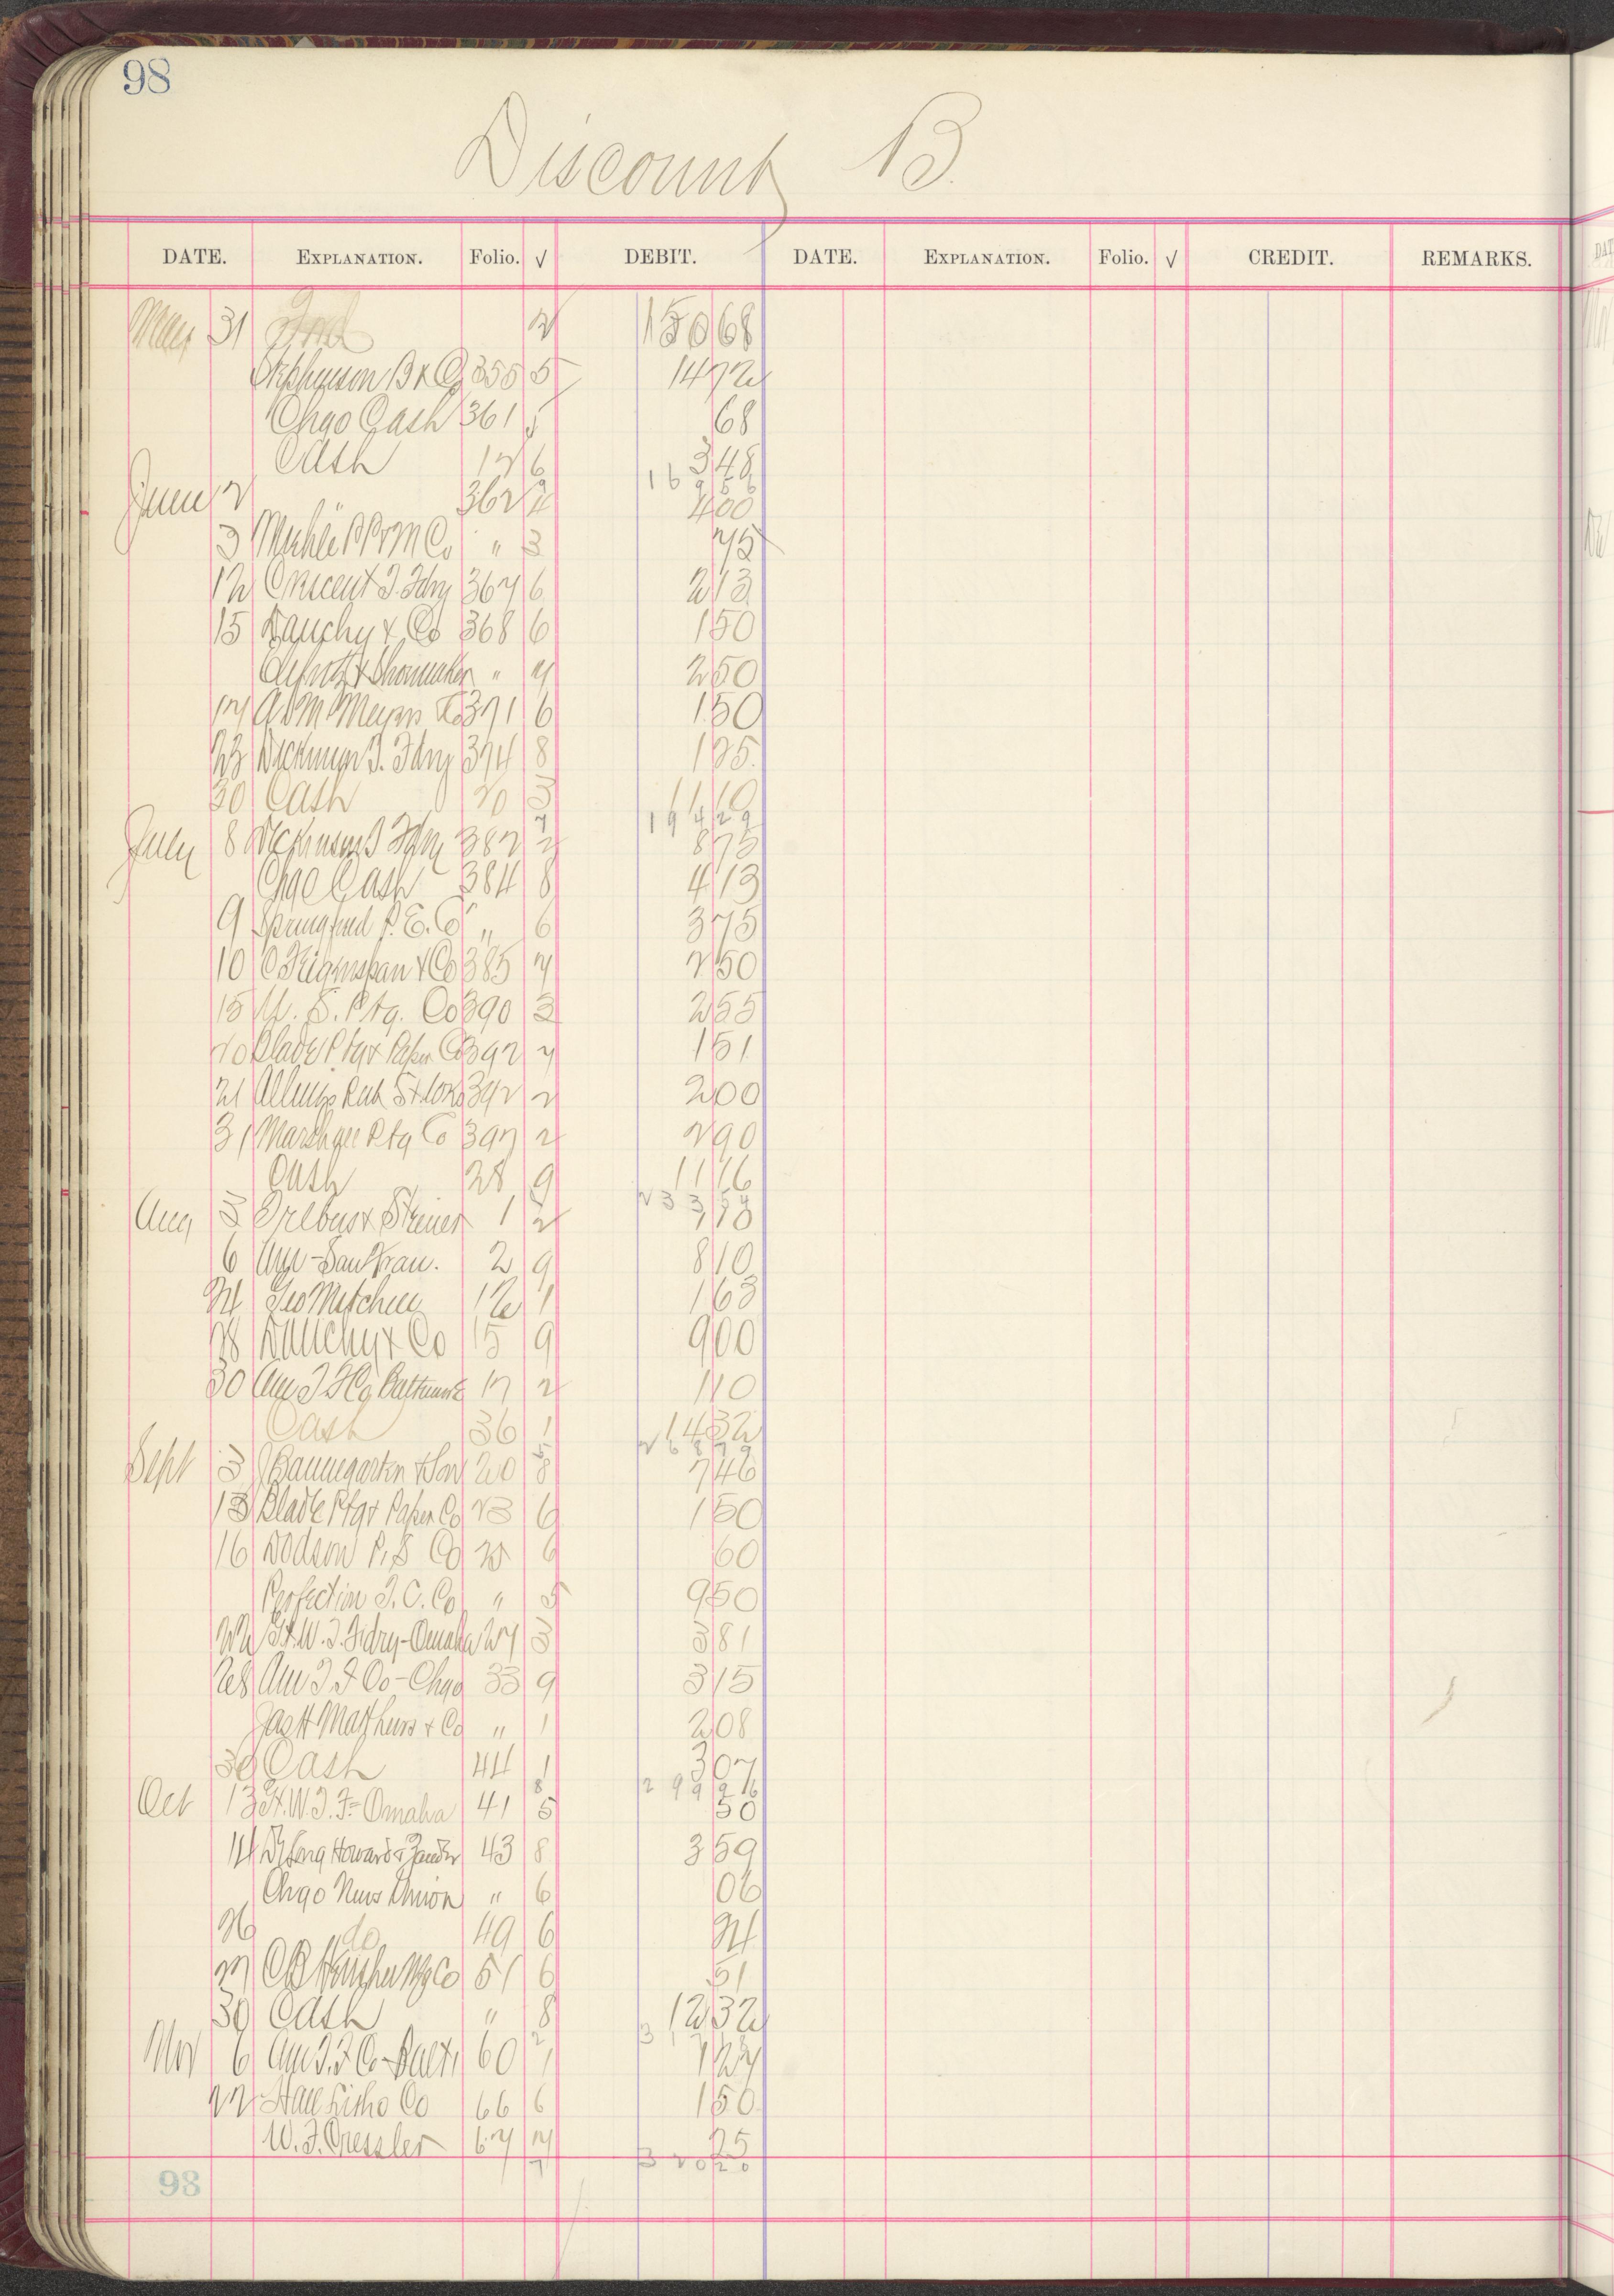 98
Discount B.
DATE. EXPLANATION. Folio. √ DEBIT. DATE. EXPLANATION. Folio. √ CREDIT. REMARKS.
May 31 2 150 68
Stephenson B & Co 355 5 14 72
Chgo Cash 361 5 68
Cash 12 6 3 48
169 56
June 2 362 4 4 00
3 Miehle P P & M Co " 3 75
12 Crescent T. Fdry 367 6 2 13
15 Dauchy & Co 368 6 1 50
& Shoemaker " 7 2 50
17 A D M Meyers Co 371 6 1 50
23 Dickinson T. Fdry 374 8 1 25
30 Cash 20 3 11 10
7 194 29
July 8 Dickinson T Fdry 382 2 8 75
Chgo Cash 384 8 4 13
9 Springfield P. E. Co " 6 3 75
10 C Feigenspan & Co 385 7 2 50
15 U. S. Ptg. Co 390 3 2 55
20 Blade Ptg & Paper Co 392 7 1 51
21 Allings Rub St Wks 392 2 2 00
31 Ptg Co 397 2 2 90
Cash 28 9 11 16
233 54
Aug 3 & Steiner 1 2 1 10
6 Am - San Fran. 2 9 8 10
24 Geo Mitchell 12 1 1 63
28 Dauchy & Co 15 9 9 00
30 Am T F Co Baltimore 17 2 1 10
Cash 36 1 14 32
268 79
Sept 3 J Baumgarten & Son 20 8 7 46
13 Blade Ptg & Paper Co 23 6 1 50
16 Dodson P. S Co 25 6 60
Perfection T. C. Co " 5 9 50
22 Gt. W. T. Fdry - Omaha 27 3 3 81
28 Am T F Co - Chgo 33 9 3 15
Jas H Mathews & Co " 1 2 08
30 Cash 44 1 3 07
8 299 96
Oct 13 Gt. W. T. F - Omaha 41 5 50
14 DeLong Howard & Zander 43 8 3 59
Chgo News Union " 6 06
26 do 49 6 24
27 C B Henschel Mfg Co 51 6 51
30 Cash " 8 12 32
Nov 6 Am T. F Co - Balti 60 1 1 27
22 Hall Litho Co 66 6 1 50
W. F. Cressler 67 7 25
7 320 20
98